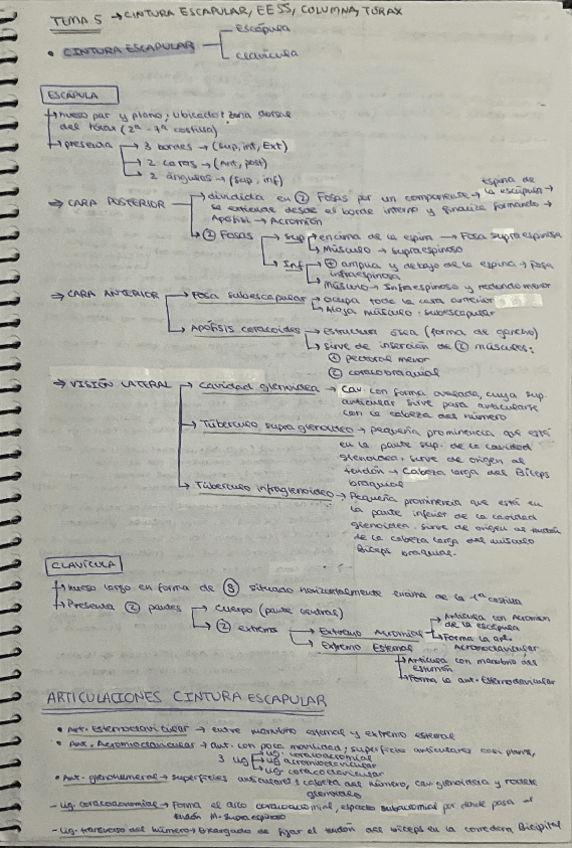 TEMA 5 → CINTURA ESCAPULAR, EESS, COLUMNA, TÓRAX
• CINTURA ESCAPULAR escápula
clavícula
ESCÁPULA
→ Hueso par y plano; ubicado: zona dorsal
del tórax (2ª - 7ª costilla)
→ presenta → 3 bordes → (sup, int, Ext)
→ 2 caras → (Ant, post)
→ 2 ángulos → (sup, inf)
⇒ CARA POSTERIOR → dividida en ② Fosas por un componente → espina de la escápula →
se extiende desde el borde interno y finaliza formando →
Apófisis → Acromión
→ ② Fosas → sup encima de la espina → Fosa supraespinosa
Músculo → supraespinoso
→ Inf ⊕ amplia y debajo de la espina → fosa
infraespinosa
Músculo → Infraespinoso y redondo menor
⇒ CARA ANTERIOR → Fosa subescapular → ocupa toda la cara anterior
→ Aloja músculo: subescapular
→ Apófisis coracoides → Estructura ósea (forma de gancho)
→ Sirve de inserción de ② músculos:
① pectoral menor
② coracobraquial
⇒ VISIÓN LATERAL → Cavidad glenoidea → cav. con forma ovalada, cuya sup.
articular sirve para articularse
con la cabeza del húmero
→ Tubérculo supraglenoideo → pequeña prominencia que está
en la parte sup. de la cavidad
glenoidea, sirve de origen al
tendón → Cabeza larga del Bíceps
braquial
→ Tubérculo infraglenoideo → Pequeña prominencia que está en
la parte inferior de la cavidad
glenoidea. sirve de origen al tendón
de la cabeza larga del músculo
Bíceps braquial.
CLAVÍCULA
→ Hueso largo en forma de Ⓢ situado horizontalmente encima de la 1ª costilla
→ Presenta ② partes → Cuerpo (parte central)
→ ② extremos → Extremo Acromial → Articula con Acromion
de la escápula
→ Forma la art.
Acromioclavicular
→ Extremo Esternal → Articula con manubrio del
esternón
→ Forma la art. Esternoclavicular
ARTICULACIONES CINTURA ESCAPULAR
• Art. Esternoclavicular → entre manubrio esternal y extremo esternal
• Art. Acromioclavicular → art. con poca movilidad; superficies articulares casi planas,
3 lig lig. coracoacromial
lig. acromioclavicular
lig. coracoclavicular
• Art. glenohumeral → superficies articulares: cabeza del húmero, cav glenoidea y rodete
glenoideo
- Lig. coracoacromial → Forma el arco coracoacromial, espacio subacromial por donde pasa el
tendón M. supraespinoso
- Lig. transverso del húmero → Encargado de fijar el tendón del bíceps en la corredera Bicipital